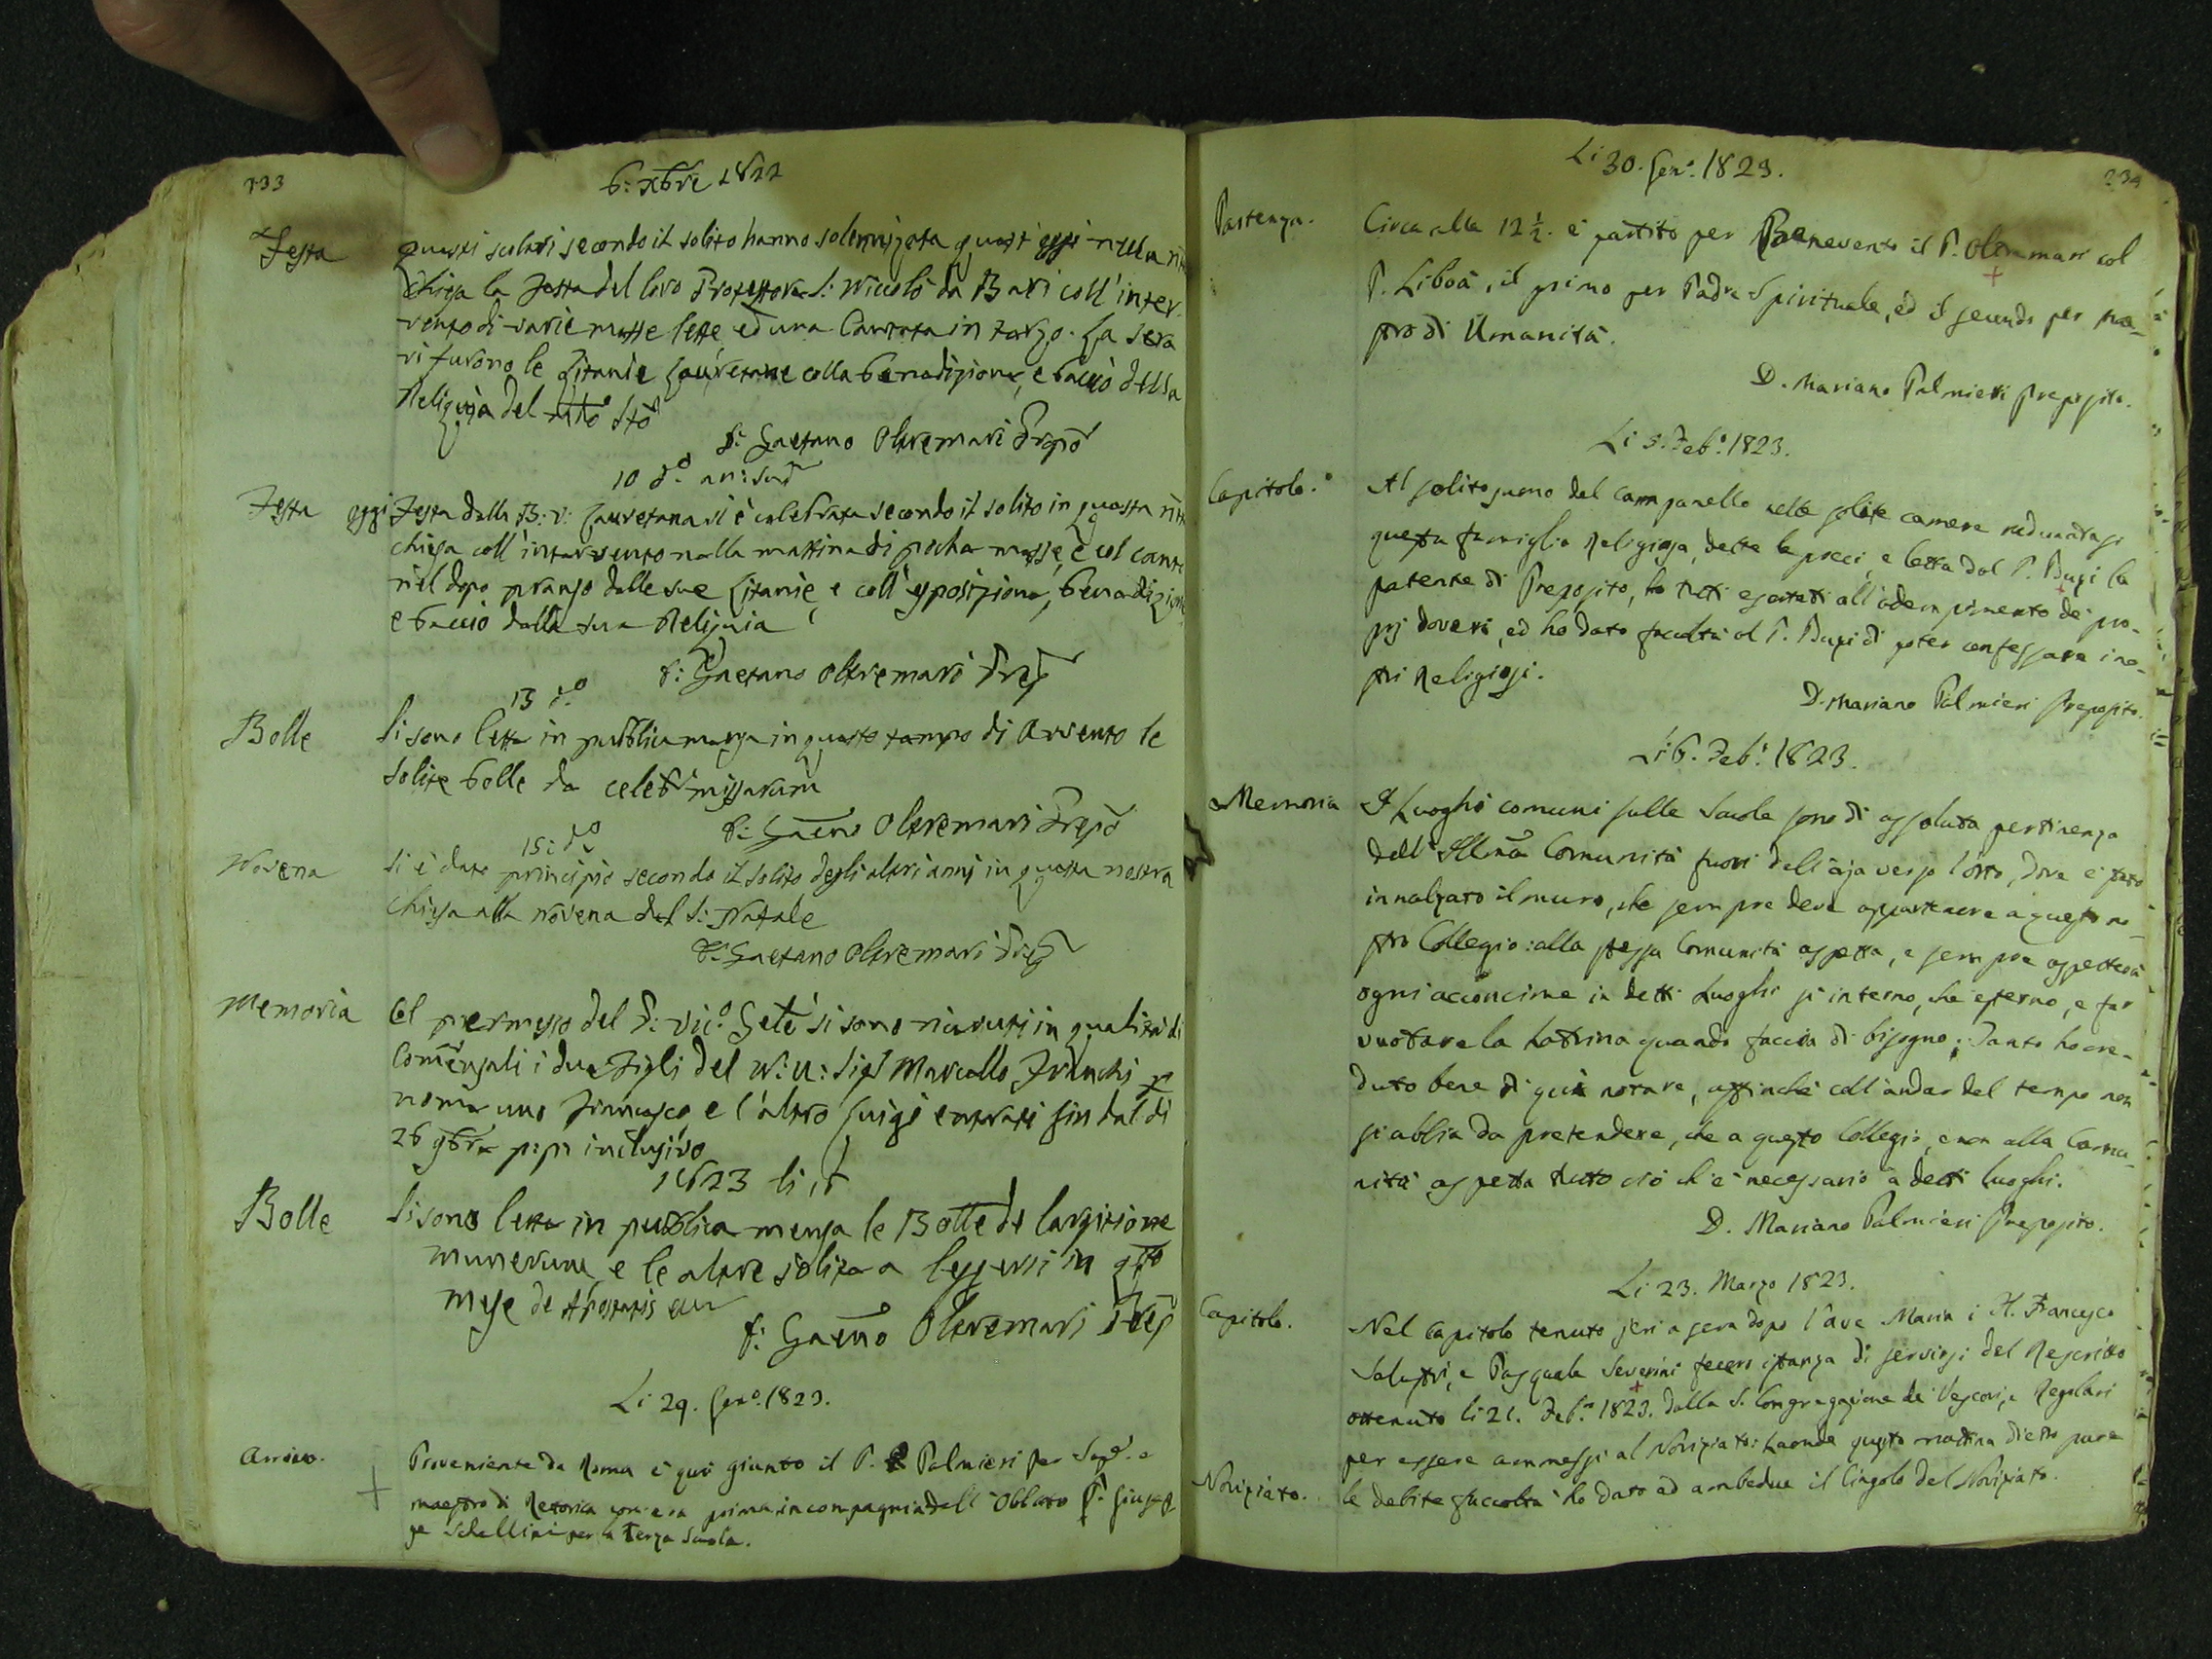 233
6: xbre 1822
Festa
questi scolari secondo il solito hanno solennizata quest'oggi nella
chiesa la Festa del loro Protettore S: Niccolò da Bari coll'inter
vento di varie messe lette ed una Cantata in Terzo. La sera
vi furono le Litanie Lauretane colla benedizione, e bacio della
Reliquia del Sto
P: Gaetano Oltremari Prepo
10 do
Festa
oggi Festa della B: V: Lauretana si è celebrata secondo il solito in questa
chiesa coll'intervento nella mattina di poche messe, e col canto
nel dopo pranzo delle sue Litanie, e coll'esposizione, benedizione
e baccio della sua Reliquia
P: Gaetano Oltremari Prep
13 do
Bolle
Si sono lette in pubblica mensa in questo tempo di Avvento le
solite bolle da celebr missarum
P: Gaeno Oltremari Prepo
15: do
Novena
Si è dato principio secondo il solito degli altri anni in questa nostra
chiesa alla Novena del S: Natale
P: Gaetano Oltremari Prep
Memoria
Col permesso del P: Vic: Gele si sono ricevuti in qualità di
Comensali i due Figli del Sigr Marcello Franchi
nome uno Francesco, e l'altro Luigi entrati sin dal dì
26 9bre p:p: inclusivo
1823 li
Bolle
Si sono lette in pubblica mensa le Bolle de largitione
munerum, e le altre solite a leggersi in qsto
mese de Apostatis
P: Gaeno Oltremari Prep
Li 29. Geno. 1823.
Arrivo.
Proveniente da Roma è quì giunto il P. Palmieri per Supe. e
maestro di Retorica com'era prima in compagnia dell'Oblato Giusep
pe per la terza Scuola.
234
Li 30. Gen: 1823.
Partenza.
Circa alle 12 1/2. è partito per Benevento il P. Oltremari col
P. Liboà, il primo per Padre Spirituale, ed il secondo per mae-
stro di Umanità.
D. Mariano Palmieri Preposito.
Li 5. Feb: 1823.
Capitolo.
Al solito suono del campanello nelle solite camere radunatasi
questa famiglia Religiosa, dette le preci, e letta dal P. Bugi la
patente di Preposito, ho tutti esortati all'adempimento de' pro-
prj doveri, ed ho dato facoltà al P. Bugi di poter confessare i no-
stri Religiosi.
D. Mariano Palmieri Preposito.
Li 6. Feb: 1823.
Memoria
I Luoghi comuni sulle Scuole sono di assoluta pertinenza
dell'Illma Comunità fuori dell'aja verso l'orto, dove è stato
innalzato il muro, che sempre deve appartenere a questo no-
stro Collegio: alla stessa Comunità aspetta, e sempre aspetterà
ogni acconcime in detti Luoghi sì interno, che esterno, e far
vuotare la Latrina quando faccia di bisogno. Tanto ho cre-
duto bene di quì notare, affinchè coll'andar del tempo non
si abbia da pretendere, che a questo Collegio, e non alla Comu-
nità aspetta tutto ciò ch'è necessario a detti luoghi.
D. Mariano Palmieri Preposito.
Li 23. Marzo 1823.
Capitolo.
Nel Capitolo tenuto jeri a sera dopo l'Ave Maria i H. Francesco
Salustri, e Pasquale Severini fecero istanza di servirsi del Rescritto
ottenuto li 21. Feb. 1823. dalla S. Congregazione de' Vescovi, e Regolari
per essere ammessi al Noviziato: laonde questa mattina dietro pure
Noviziato.
le debite faccoltà ho dato ad ambedue il Cingolo del Noviziato.